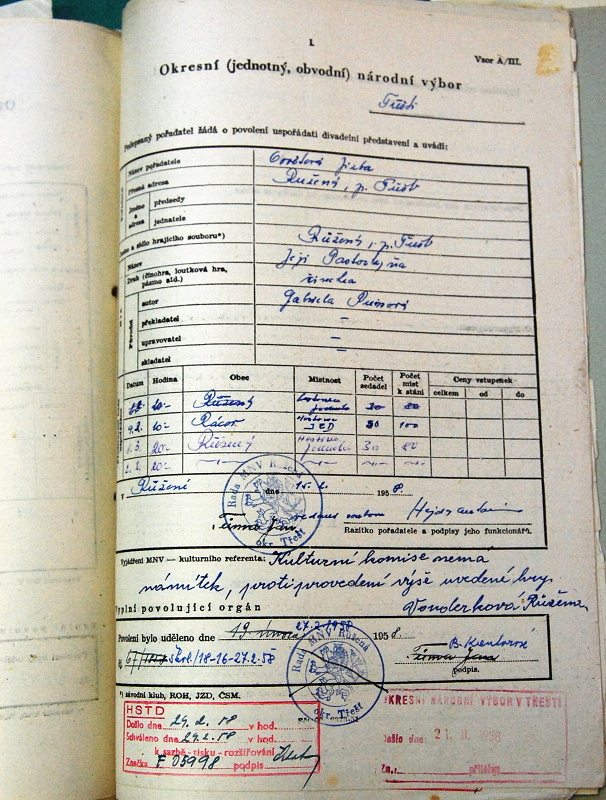 I.
Vzor A/III.
Okresní (jednotný, obvodní) národní výbor
Třešti
Podepsaný pořadatel žádá o povolení uspořádati divadelní představení a uvádí:
Název pořadatele
Přesná adresa Růžená, p. Třešť
Jméno a adresa předsedy
jednatele
Jméno a sídlo hrajícího souboru*) Růžená, p. Třešť
Název Její Pastorkyňa
Druh (činohra, loutková hra, pásmo atd.) činohra
Původní
autor Gabriela Preissová
překladatel –
upravovatel –
skladatel –
Datum Hodina Obec Místnost Počet sedadel Počet míst k stání Ceny vstupenek
celkem od do
20.- Růžená 30 80
9.2. 20.- Rácov Hostinec JED 30 100
20.- Růžená Hostinec Jednota 30 80
2. 20.-
V Růžené dne 15.2. 1958.
Rada MNV Růžená
okr. Třešť
Razítko pořadatele a podpisy jeho funkcionářů.
Vyjádření MNV — kulturního referenta: Kulturní komise nemá
námitek, proti provedení výše uvedené hry.
Vyplní povolující orgán Vonderková Růžena
27.2.1958
Povolení bylo uděleno dne 19. února 1958.
Škol/18-16-27.2.58
Rada MNV Růžená
okr. Třešť
podpis.
*) závodní klub, ROH, JZD, ČSM.
HSTD
Došlo dne 24.2.58 v hod.
Schváleno dne 24.2.58 v hod.
k sazbě - tisku - rozšiřování
Značka F 05998 podpis
OKRESNÍ NÁRODNÍ VÝBOR V TŘEŠTI
Došlo dne: 21. II. 1958
Zn.: příloh